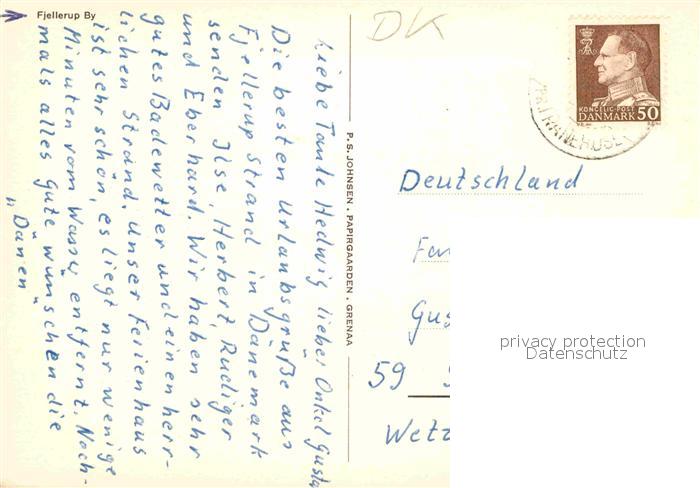 Fjellerup By
DK
Liebe Tante Hedwig, lieber Onkel Gusta
Die besten Urlaubsgrüße aus
Fjellerup Strand in Dänemark
senden Ilse, Herbert, Rudiger
und Eberhard. Wir haben sehr
gutes Badewetter und einen herr-
lichen Strand. Unser Ferienhaus
ist sehr schön, es liegt nur wenige
Minuten vom Wasser entfernt. Noch-
mals alles Gute wünschen die
"Dänen"
P. S. JOHNSEN . PAPIRGAARDEN . GRENAA
KONGELIG POST
DANMARK 50
Deutschland
Fa
Gus
59
Wetz
privacy protection
Datenschutz